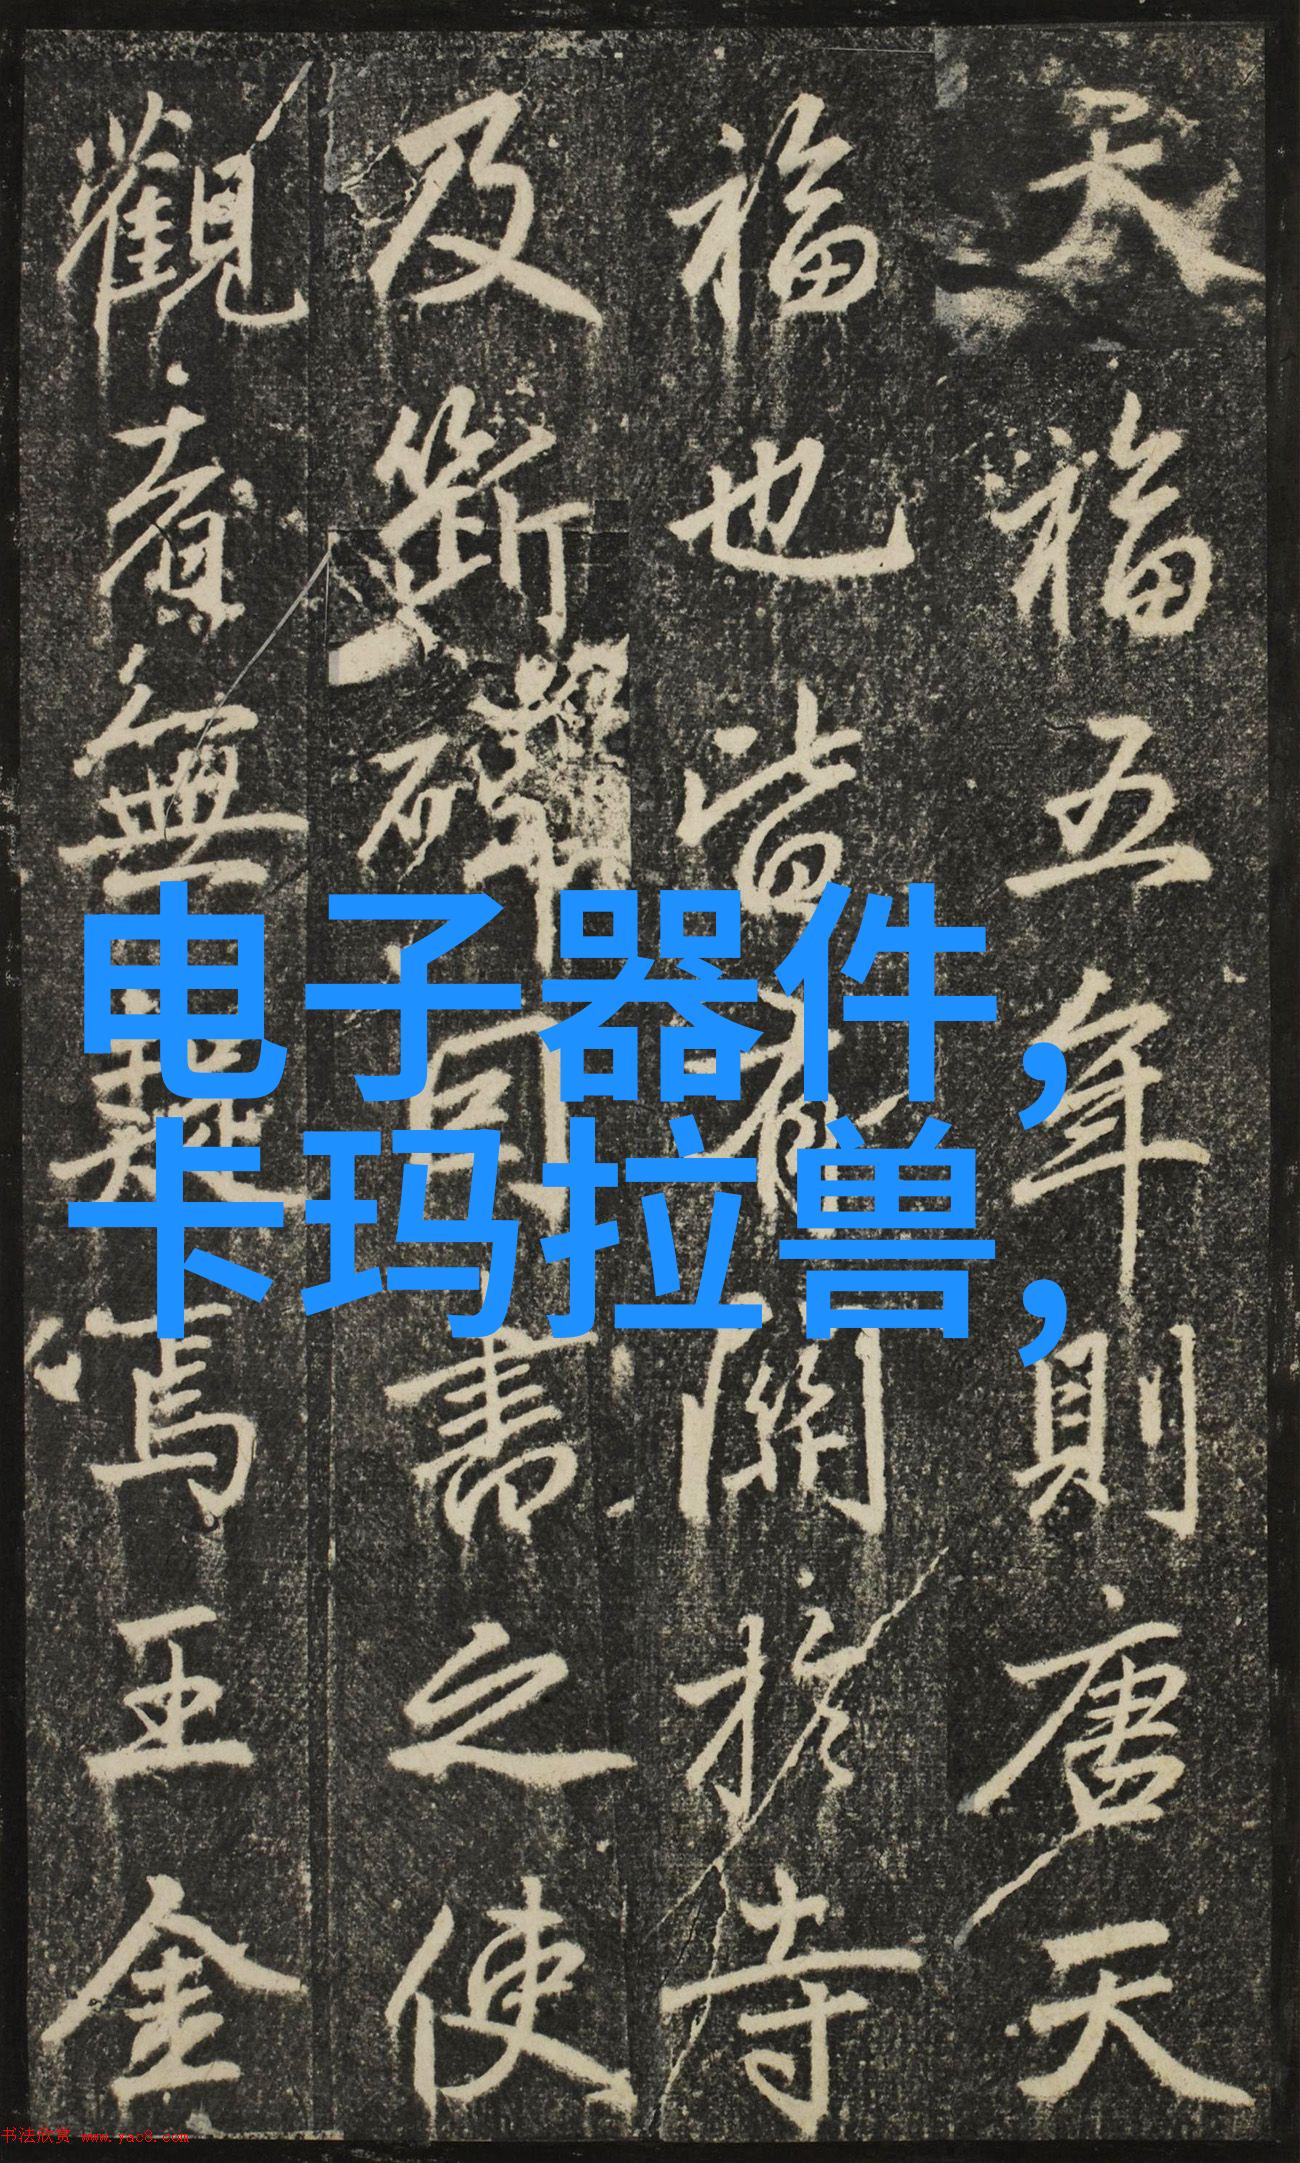 天福五年則唐天
福也皆有關於寺
及斷碑書之使
觀無疑焉王金
电子器件，
卡玛拉兽，
书法欣赏 www.yac8.com